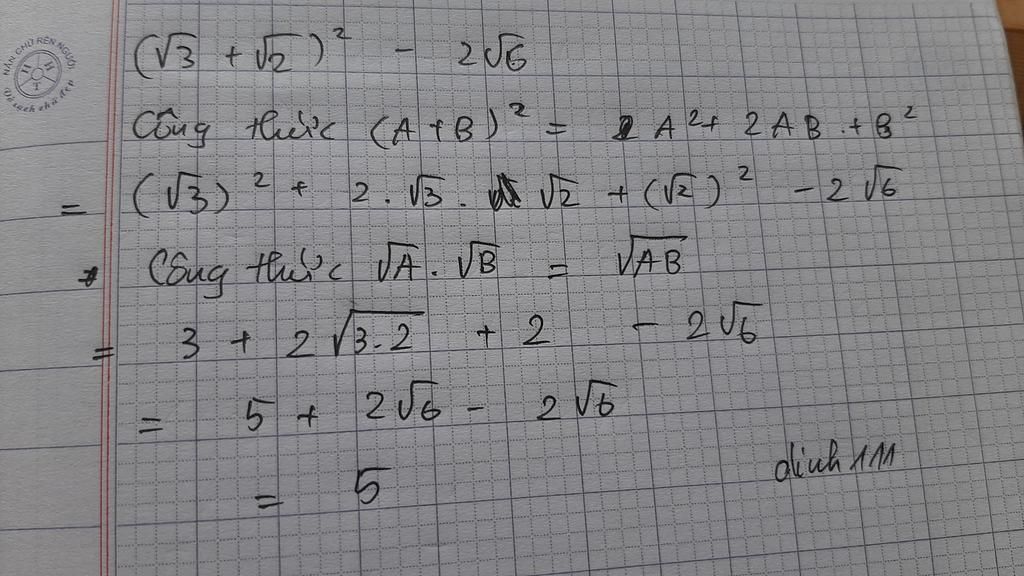 NẮN CHỮ RÈN NGƯỜI
Vở sạch chữ đẹp
(√3 + √2)² - 2√6
Công thức (A + B)² = A² + 2AB + B²
= (√3)² + 2.√3.√2 + (√2)² - 2√6
* Công thức √A . √B = √AB
= 3 + 2√3.2 + 2 - 2√6
= 5 + 2√6 - 2√6
= 5
dinh 111